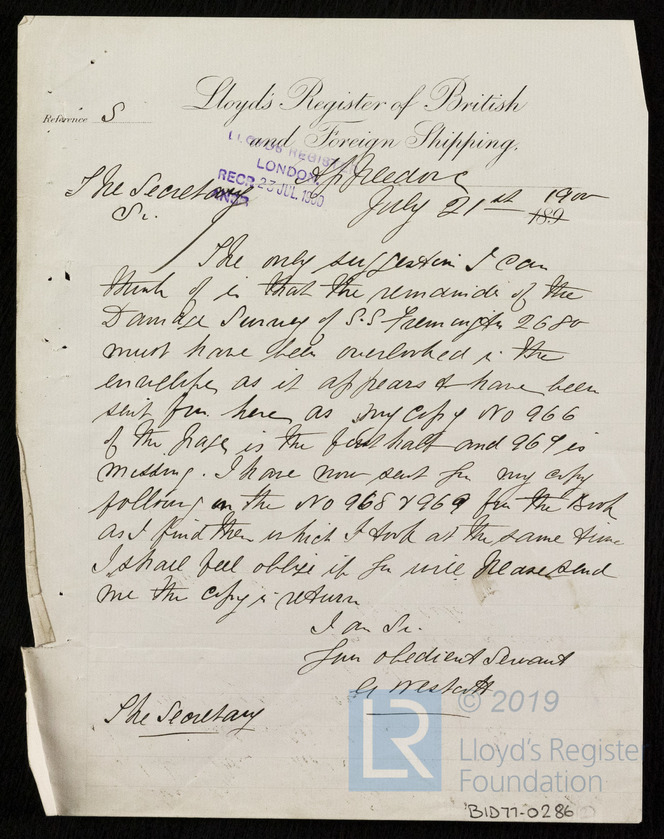 Lloyd's Register of British
and Foreign Shipping.
Reference S
LLOYD'S REGISTER
LONDON
RECD 23 JUL. 1900
Appledore
July 21st 1900
189
The Secretary
Sir
The only suggestion I can
think of is that the remainder of the
Damage Survey of S.S. Fremington 2680
must have been overlooked in the
envelope as it appears to have been
sent from here, as my copy No 966
of the Pages is the first half and 967 is
missing. I have now sent you my copy
following on the No 968 & 969 from the Book
as I find them which I took at the same time
I shall feel oblige if you will Please send
me the copy in return
I am Sir
Your obedient Servant
G Westcott
The Secretary
© 2019
LR
Lloyd's Register
Foundation
BID77-0286